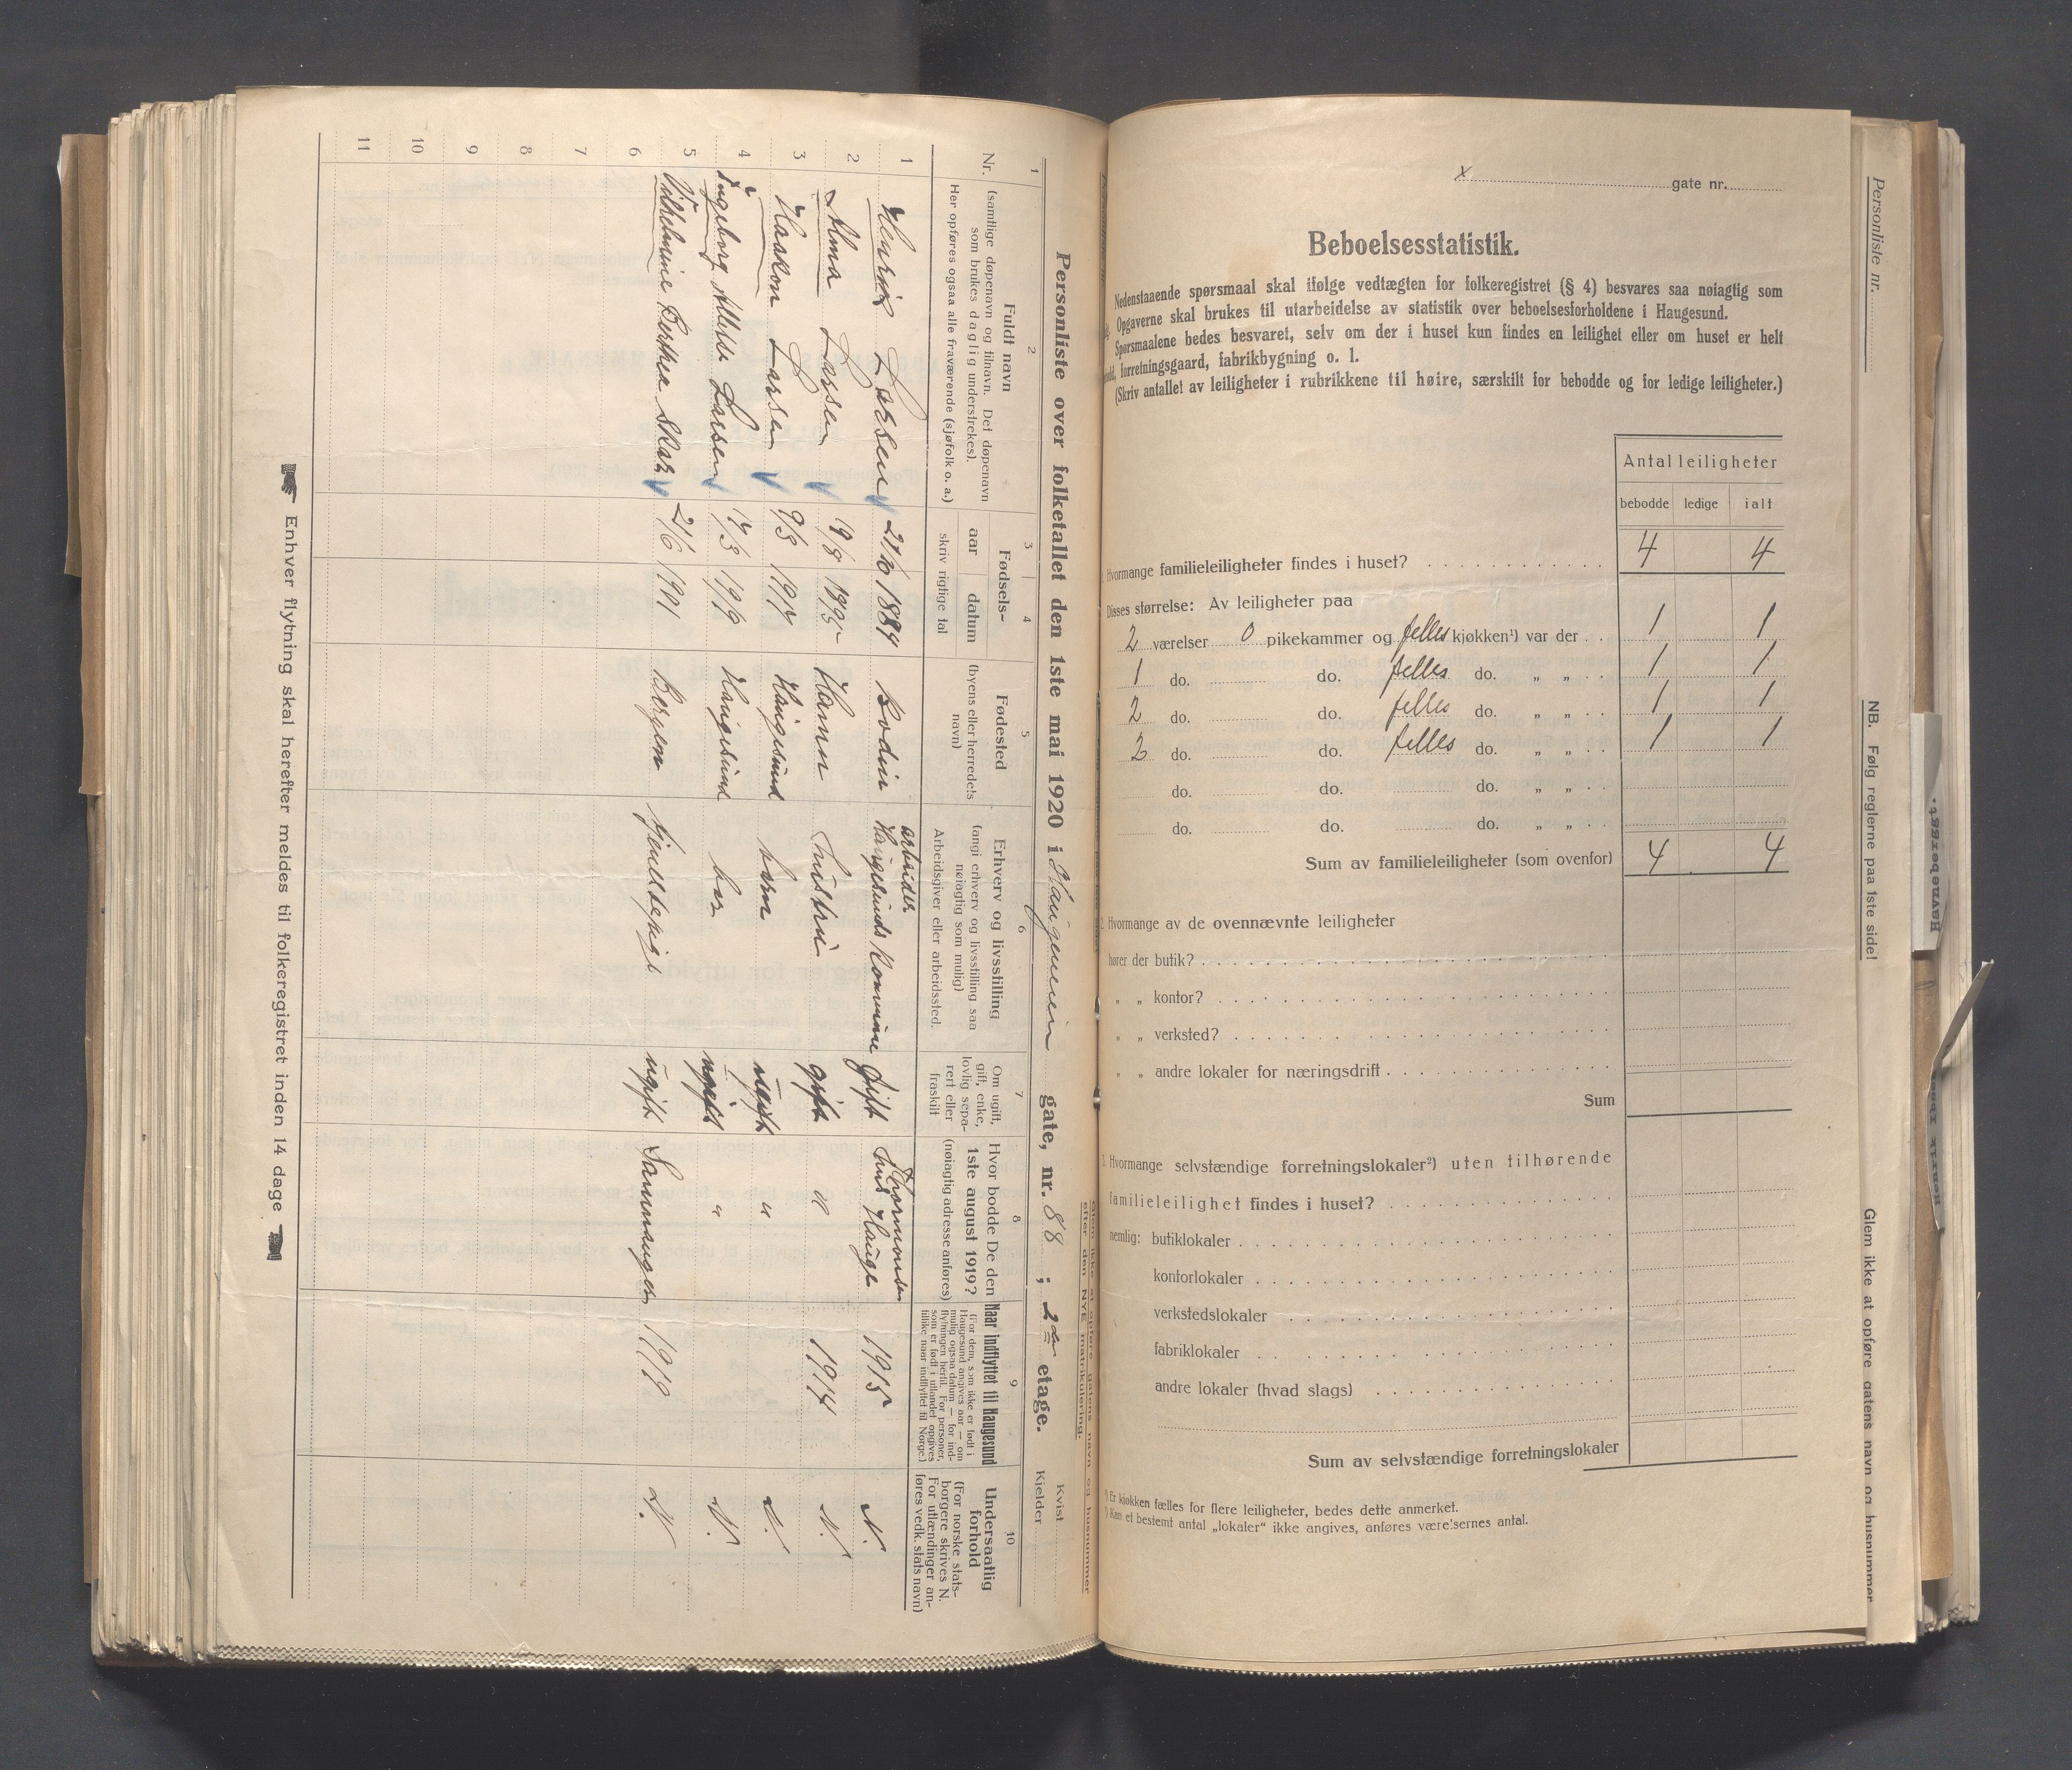 Personliste over folketallet den 1ste mai 1920 i Haugeveien gate, nr. 88 ; 2den etage.
Kvist
Kjelder
Glem ikke at opføre gatens navn og husnummer
efter den NYE matrikulering.
1 2 3 4 5 6 7 8 9 10
Nr.
Fuldt navn
(samtlige døpenavn og tilnavn. Det døpenavn
som brukes daglig understrekes).
Her opføres ogsaa alle fraværende (sjøfolk o. a.)
Fødsels-
aar datum
skriv rigtige tal
Fødested
(byens eller herredets
navn)
Erhverv og livsstilling
(angi erhverv og livsstilling saa
nøiagtig som mulig)
Arbeidsgiver eller arbeidssted.
Om ugift,
gift, enke,
lovlig sepa-
rert eller
fraskilt
Hvor bodde De den
1ste august 1919?
(nøiagtig adresse anføres)
Naar indflyttet til Haugesund
(For dem, som ikke er født i
Haugesund angives aar — om
mulig ogsaa datum — for ind-
flytningen hertil. For personer,
som er født i utlandet opgives
tillike naar indflyttet til Norge.)
Undersaatlig
forhold
(For norske stats-
borgere skrives N.
For utlændinger an-
føres vedk. stats navn)
1 Henrik Larsen 27/6 1884 Bodin arbeider Haugesunds Kommune gift Thormodsen hus Hauge 1915 N.
2 Alma Larsen 19/8 1895 Hamn hustru gift " 1914 N.
3 Haakon L Larsen 9/3 1917 Haugesund barn ugift " N.
4 Ingeborg Alfilde Larsen 17/3 1919 Haugesund bar ugift " N.
5 Vilhelmine Berthea Skar 2/6 1901 Bergen tjenstepige ugift Samnanger 1919 N.
6
7
8
9
10
11
Enhver flytning skal herefter meldes til folkeregistret inden 14 dage
x gate nr.
Beboelsesstatistik.
Nedenstaaende spørsmaal skal ifølge vedtægten for folkeregistret (§ 4) besvares saa nøiagtig som
Opgaverne skal brukes til utarbeidelse av statistik over beboelsesforholdene i Haugesund.
Spørsmaalene bedes besvaret, selv om der i huset kun findes en leilighet eller om huset er helt
forretningsgaard, fabrikbygning o. l.
(Skriv antallet av leiligheter i rubrikkene til høire, særskilt for bebodde og for ledige leiligheter.)
Antal leiligheter
bebodde ledige ialt
Hvormange familieleiligheter findes i huset? 4 4
Disses størrelse: Av leiligheter paa
2 værelser 0 pikekammer og felles kjøkken¹) var der 1 1
1 do. do. felles do. " " 1 1
2 do. do. felles do. " " 1 1
2 do. do. felles do. " " 1 1
do. do. do. " "
do. do. do. " "
Sum av familieleiligheter (som ovenfor) 4 4
2. Hvormange av de ovennævnte leiligheter
hører der butik?
" " kontor?
" " verksted?
" " andre lokaler for næringsdrift
Sum
3. Hvormange selvstændige forretningslokaler²) uten tilhørende
familieleilighet findes i huset?
nemlig: butiklokaler
kontorlokaler
verkstedslokaler
fabriklokaler
andre lokaler (hvad slags)
Sum av selvstændige forretningslokaler
¹) Er kjøkken fælles for flere leiligheter, bedes dette anmerket.
²) Kan et bestemt antal „lokaler" ikke angives, anføres værelsernes antal.
Personliste nr.
NB. Følg reglerne paa 1ste side!
Glem ikke at opføre gatens navn og husnummer